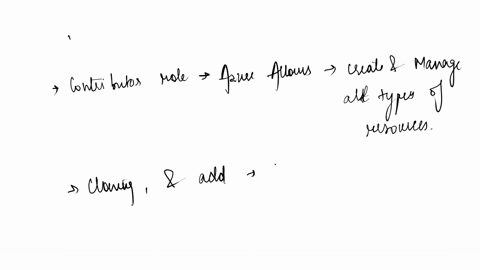 → Contributor role → Azure Allows → create & Manage
all types of
resources.
→ Cloning, & add →